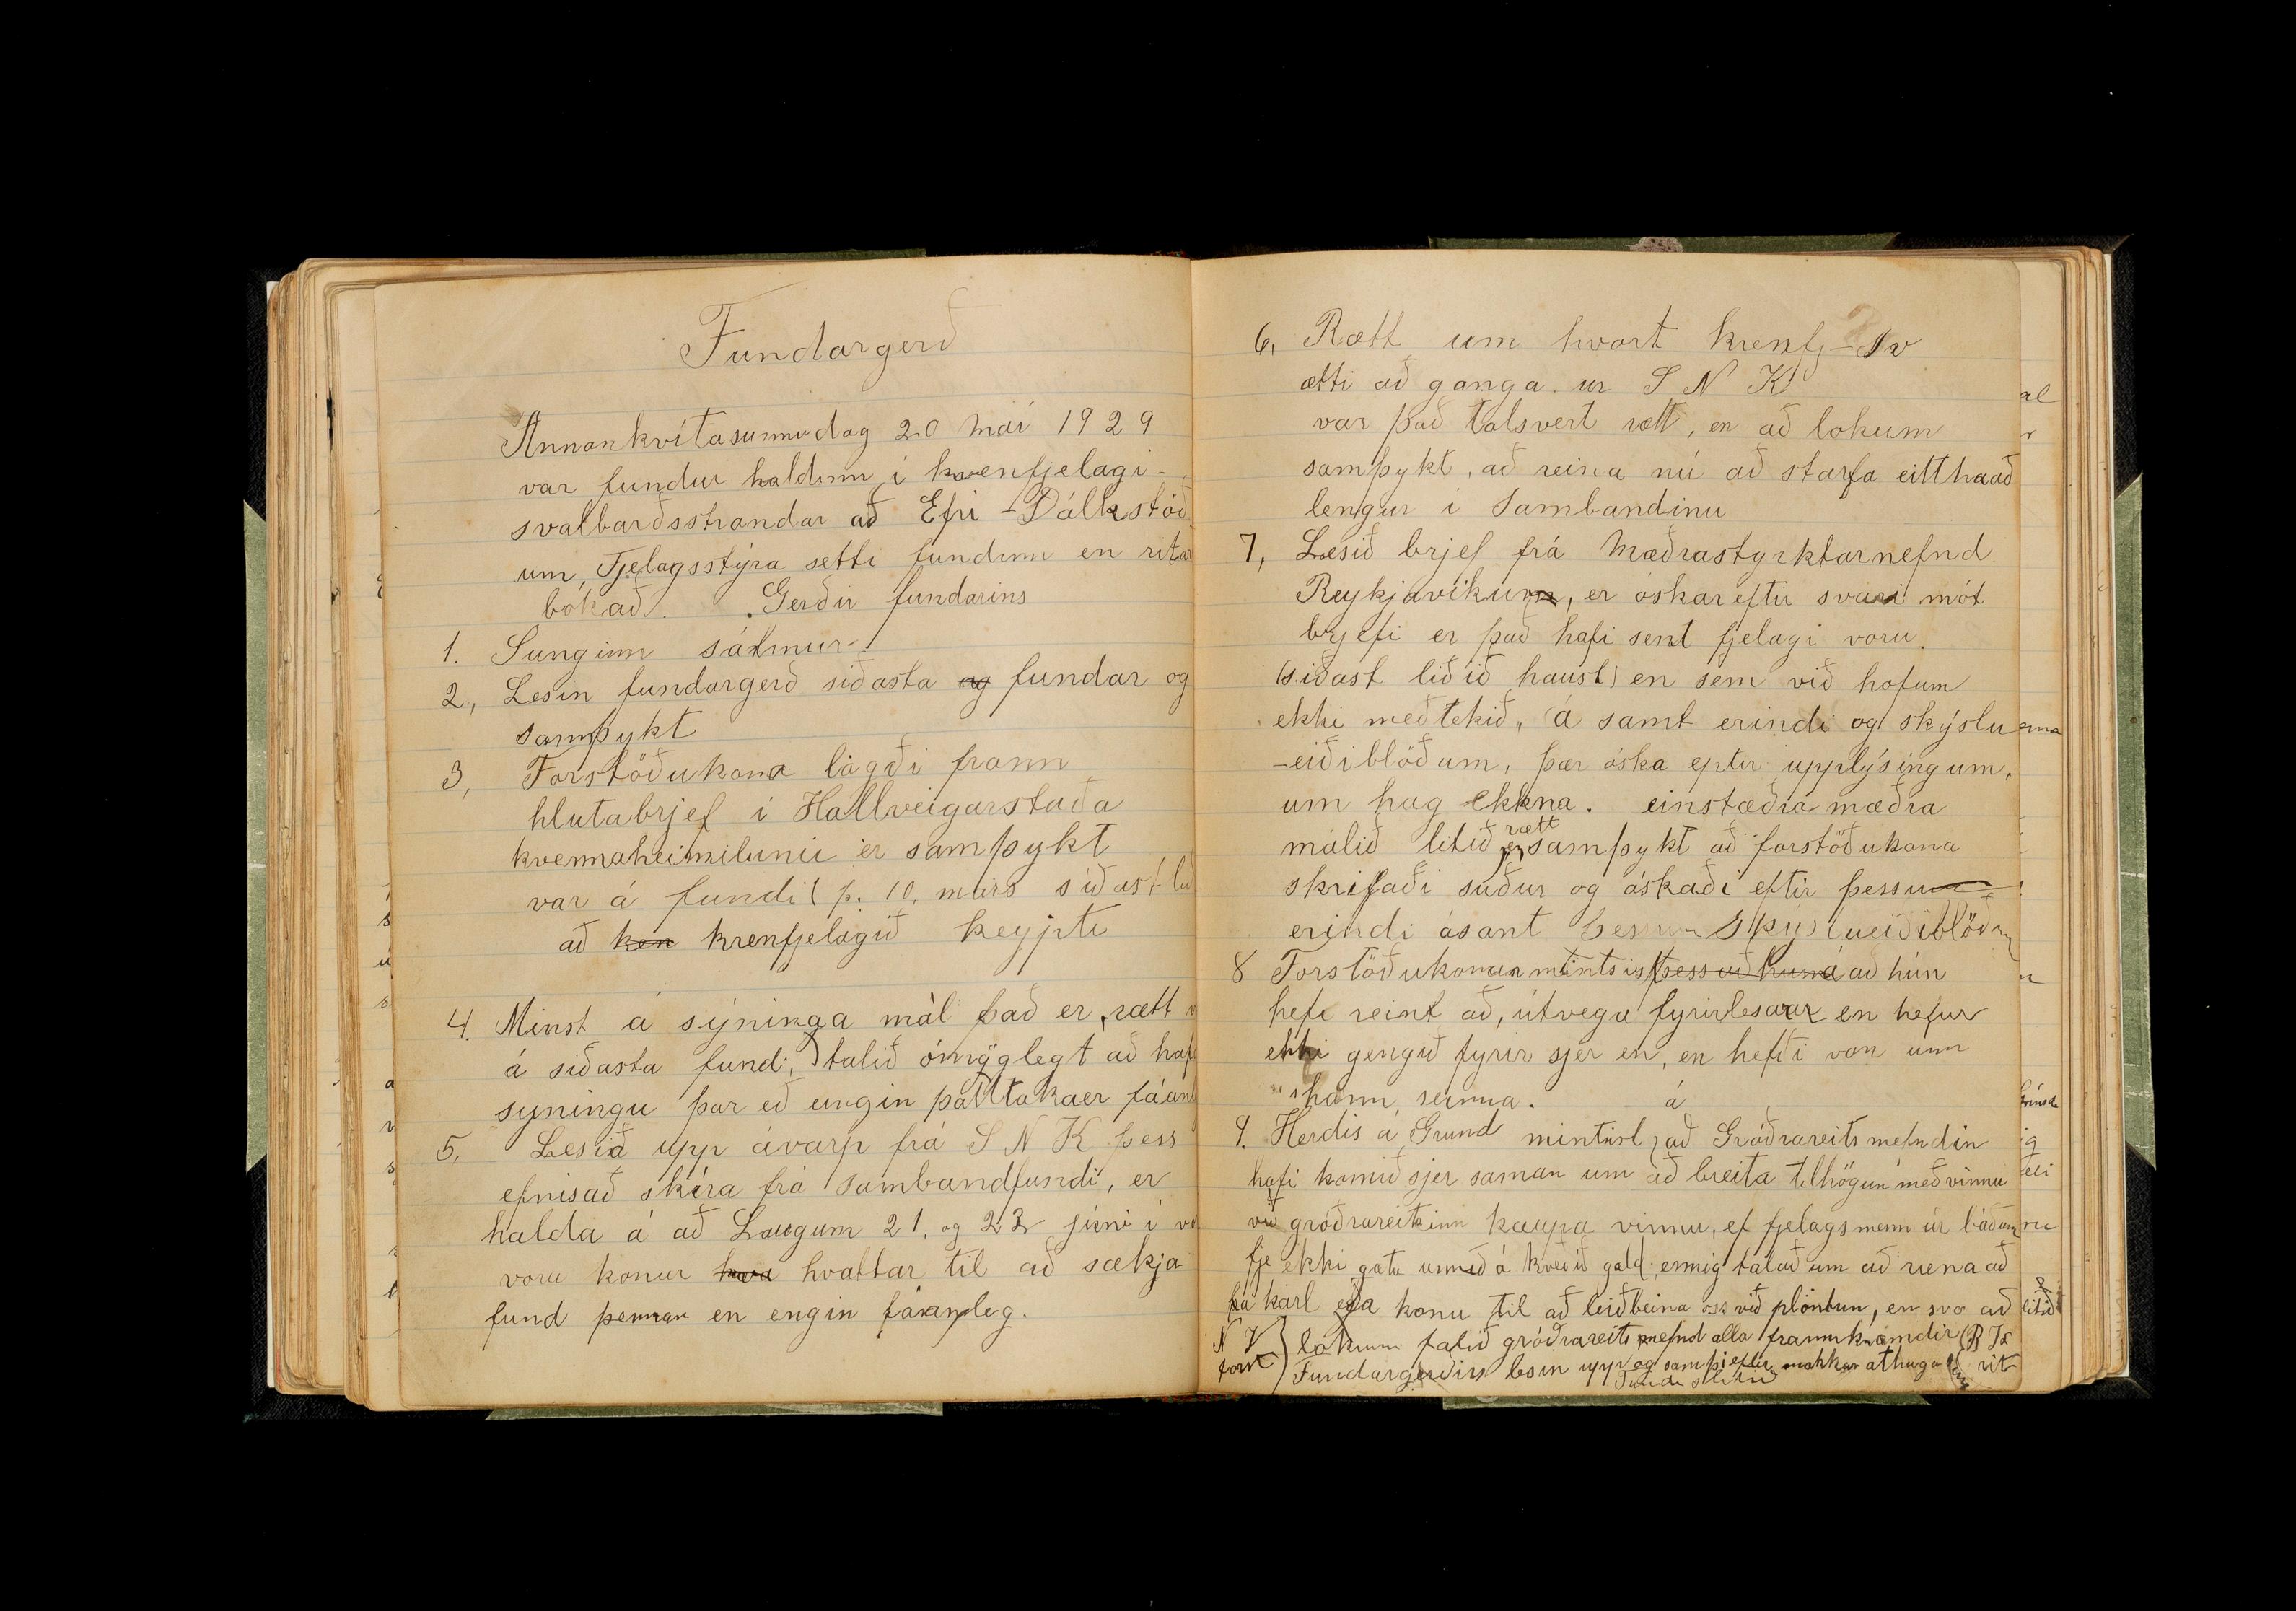 Fundargerð
Annankvítasunnudag 20 maí 1929
var fundur haldinn í kvenfjelagi-
svalbarðsstrandar að Efri-Dálkstöð
um, Fjelagsstýra setti fundinn en ritar
bókað. Gerðir fundarins
1. Sunginn sálmur
2, Lesin fundargerð siðasta og fundar og
samþykt
3, Forstöðukona lagði framm
hlutabrjef i Hallveigarstaða
kvennaheimilunu er samþykt
var á fundi (þ. 10. mars síðastl
að kon kvenfjelagið keypti
4. Minst á sýninga mál það er, rætt v
á siðasta fundi, talið ómöglegt að haf
syningu þar eð eingin þátttakaer fáanl
5. Lesið upp ávarp frá S N K þess
efnisað skíra frá Sambandfundi, er
halda á að Laugum 21. og 23 júni í vo
voru konur hvattar til að sækja
fund þennan en engin fáanleg.
6, Rætt um hvort kvenfj-Sv
ætti að ganga ur S N K
var það talsvert rætt, en að lokum
samþykt, að reina nú að starfa eitthvað
lengur i Sambandinu
7, Lesið brjef frá Mæðrastyrktarnefnd
Reykjavikur, er óskareftir svari mót
brjefi er það hafi sent fjelagi voru.
(siðast liðið haust) en sem við hofum
ekki meðtekið, á samt erindi og skýslu
-eiðiblöðum, þær óska eptir upplýsingum,
um hag ekkna. einstæðra mæðra
rætt
málið litið en samþykt að forstöðukona
skrifaði suður og óskaði eftir þessu
erindi ásant þessum Skýslueiðiblöðum
8 Forstöðukonan mintist þess að hún á að hún
hefi reint að, útvegu fyrirlesara en hefur
ekki gengið fyrir sjer en, en hefði von um
hann, seinna. á
9. Herdis á Grund mintist, að Gróðrareits nefndin
hafi komið sjer saman um að breita tilhögun með vinnu
við gróðrareitinn kaupa vinnu, ef fjelagsmenn úr báðum
fje ekki gætu unnið á kveðið gald, ennig talað um að riena að
fá karl eða konu til að leiðbeina oss við plöntun, en svo að
lokum falið gróðrareits nefnd alla frammkvæmdir (B Is
N V
forst
Fundargerðin lesin upp og samþ eftir nokkar athuga rit
Fundi slitið